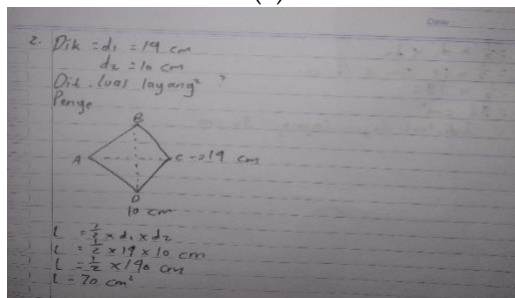 2. Dik = d₁ = 14 cm
d₂ = 10 cm
Dit. luas layang² ?
Penge
B
A
C → 14 cm
D
10 cm
L = 1/2 x d₁ x d₂
L = 1/2 x 14 x 10
L = 1/2 x 140 cm
L = 70 cm²